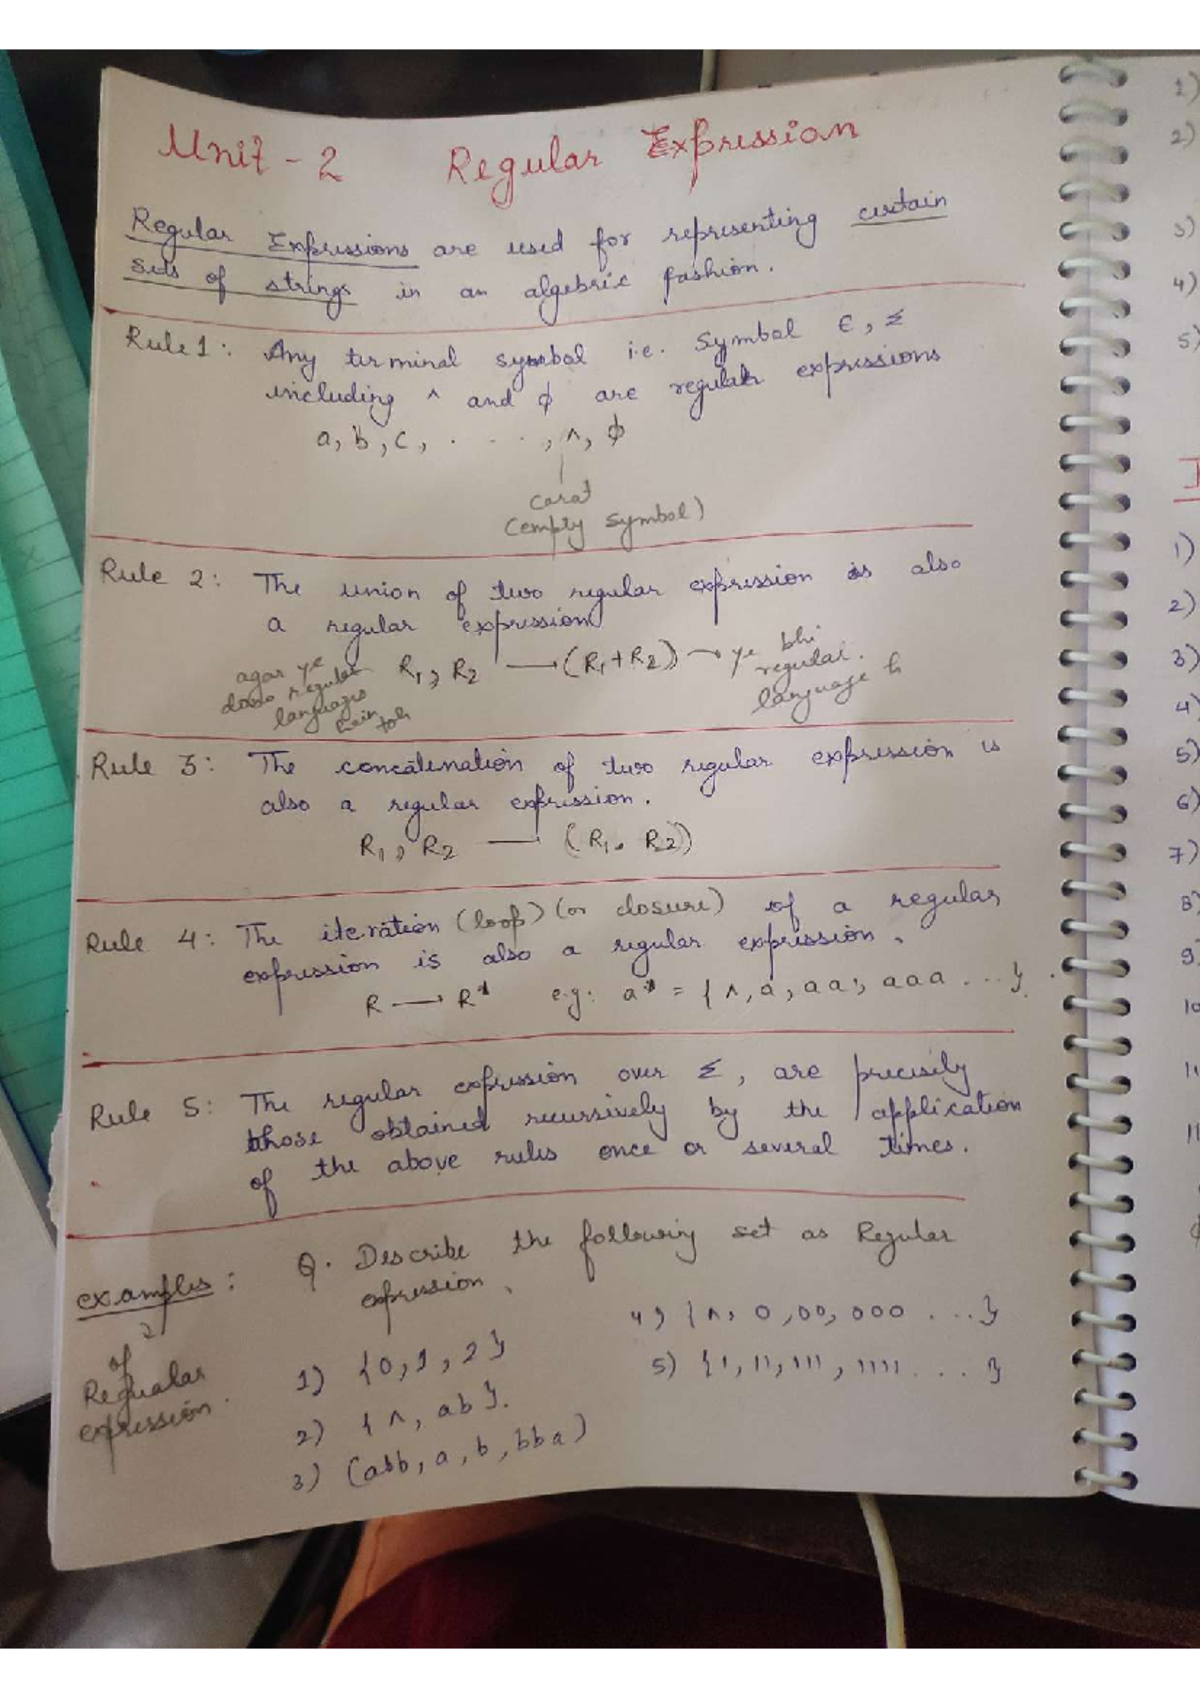 Unit - 2 Regular Expression
Regular Expressions are used for representing certain
sets of strings in an algebric fashion.
Rule 1: Any terminal symbol i.e. Symbol ∈, Σ
including ^ and ϕ are regular expressions
a, b, c, . . . . , ^, ϕ
carat
(empty symbol)
Rule 2: The union of two regular expression is also
a regular expression
agar ye dono regular languages hain toh R1, R2 → (R1+R2) → ye bhi regular. language h
Rule 3: The concatenation of two regular expression is
also a regular expression.
R1, R2 — (R1. R2)
Rule 4: The iteration (loop) (or closure) of a regular
expression is also a regular expression.
R → R* e.g: a* = {^, a, aa, aaa ...}.
Rule 5: The regular expression over Σ, are precisily
those obtained recursively by the application
of the above rules once or several times.
examples: Q. Describe the following set as Regular
expression.
of
Regualar
expression.
1) {0, 1, 2}
2) {^, ab}.
3) (abb, a, b, bba)
4) {^, 0, 00, 000 ...}
5) {1, 11, 111, 1111 . . . }
1)
2)
3)
4)
5)
1)
2)
3)
4)
5)
6)
7)
8)
9)
10
11
11